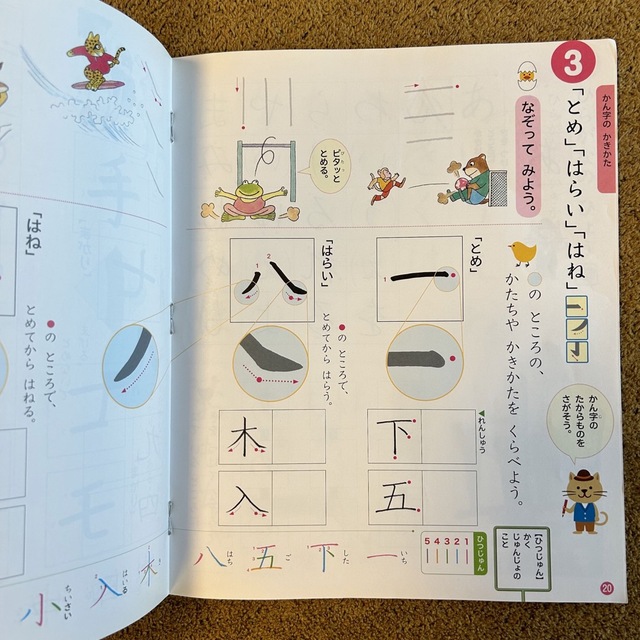 3
かん字の かきかた
「とめ」「はらい」「はね」
かん字の
たからものを
さがそう。
20
なぞって みよう。
ピタッと
とめる。
の ところの、
かたちや かきかたを くらべよう。
「とめ」
一
1
「はらい」
八
1
2
の ところで、
とめてから はらう。
れんしゅう
下
五
木
入
【ひつじゅん】
かく
じゅんじょの
こと
ひつじゅん
5 4 3 2 1
一 いち
下 した
五 ご
八 はち
木 き
入 はいる
小 ちいさい
「はね」
の ところで、
とめてから はねる。